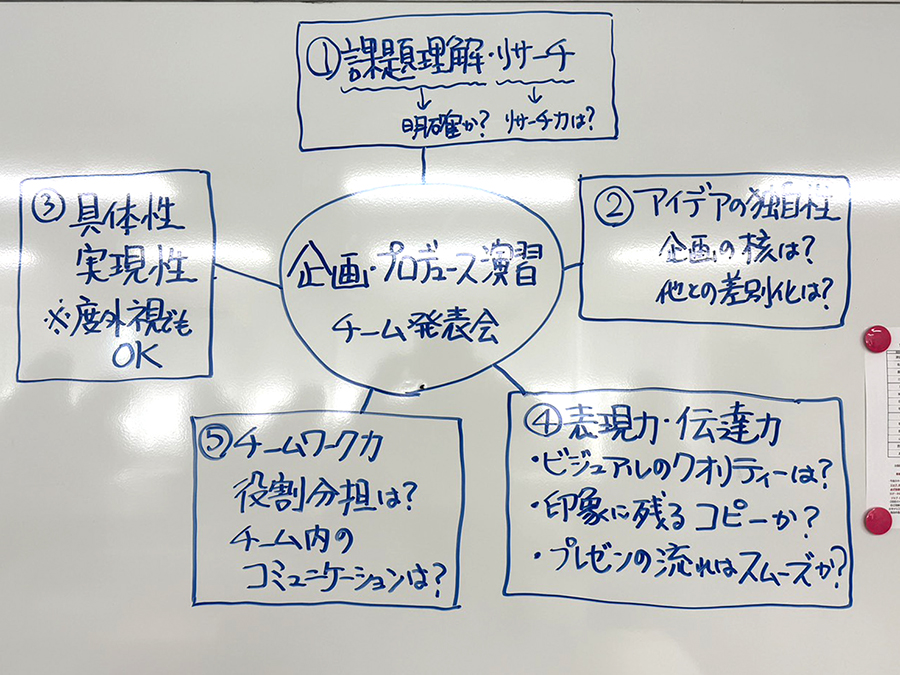 企画・プロデュース演習
チーム発表会
①課題理解・リサーチ
明確か? リサーチ力は?
②アイデアの独自性
企画の核は?
他との差別化は?
③具体性
実現性
※度外視でも
OK
④表現力・伝達力
・ビジュアルのクオリティーは?
・印象に残るコピーか?
・プレゼンの流れはスムーズか?
⑤チームワーク力
役割分担は?
チーム内の
コミュニケーションは?